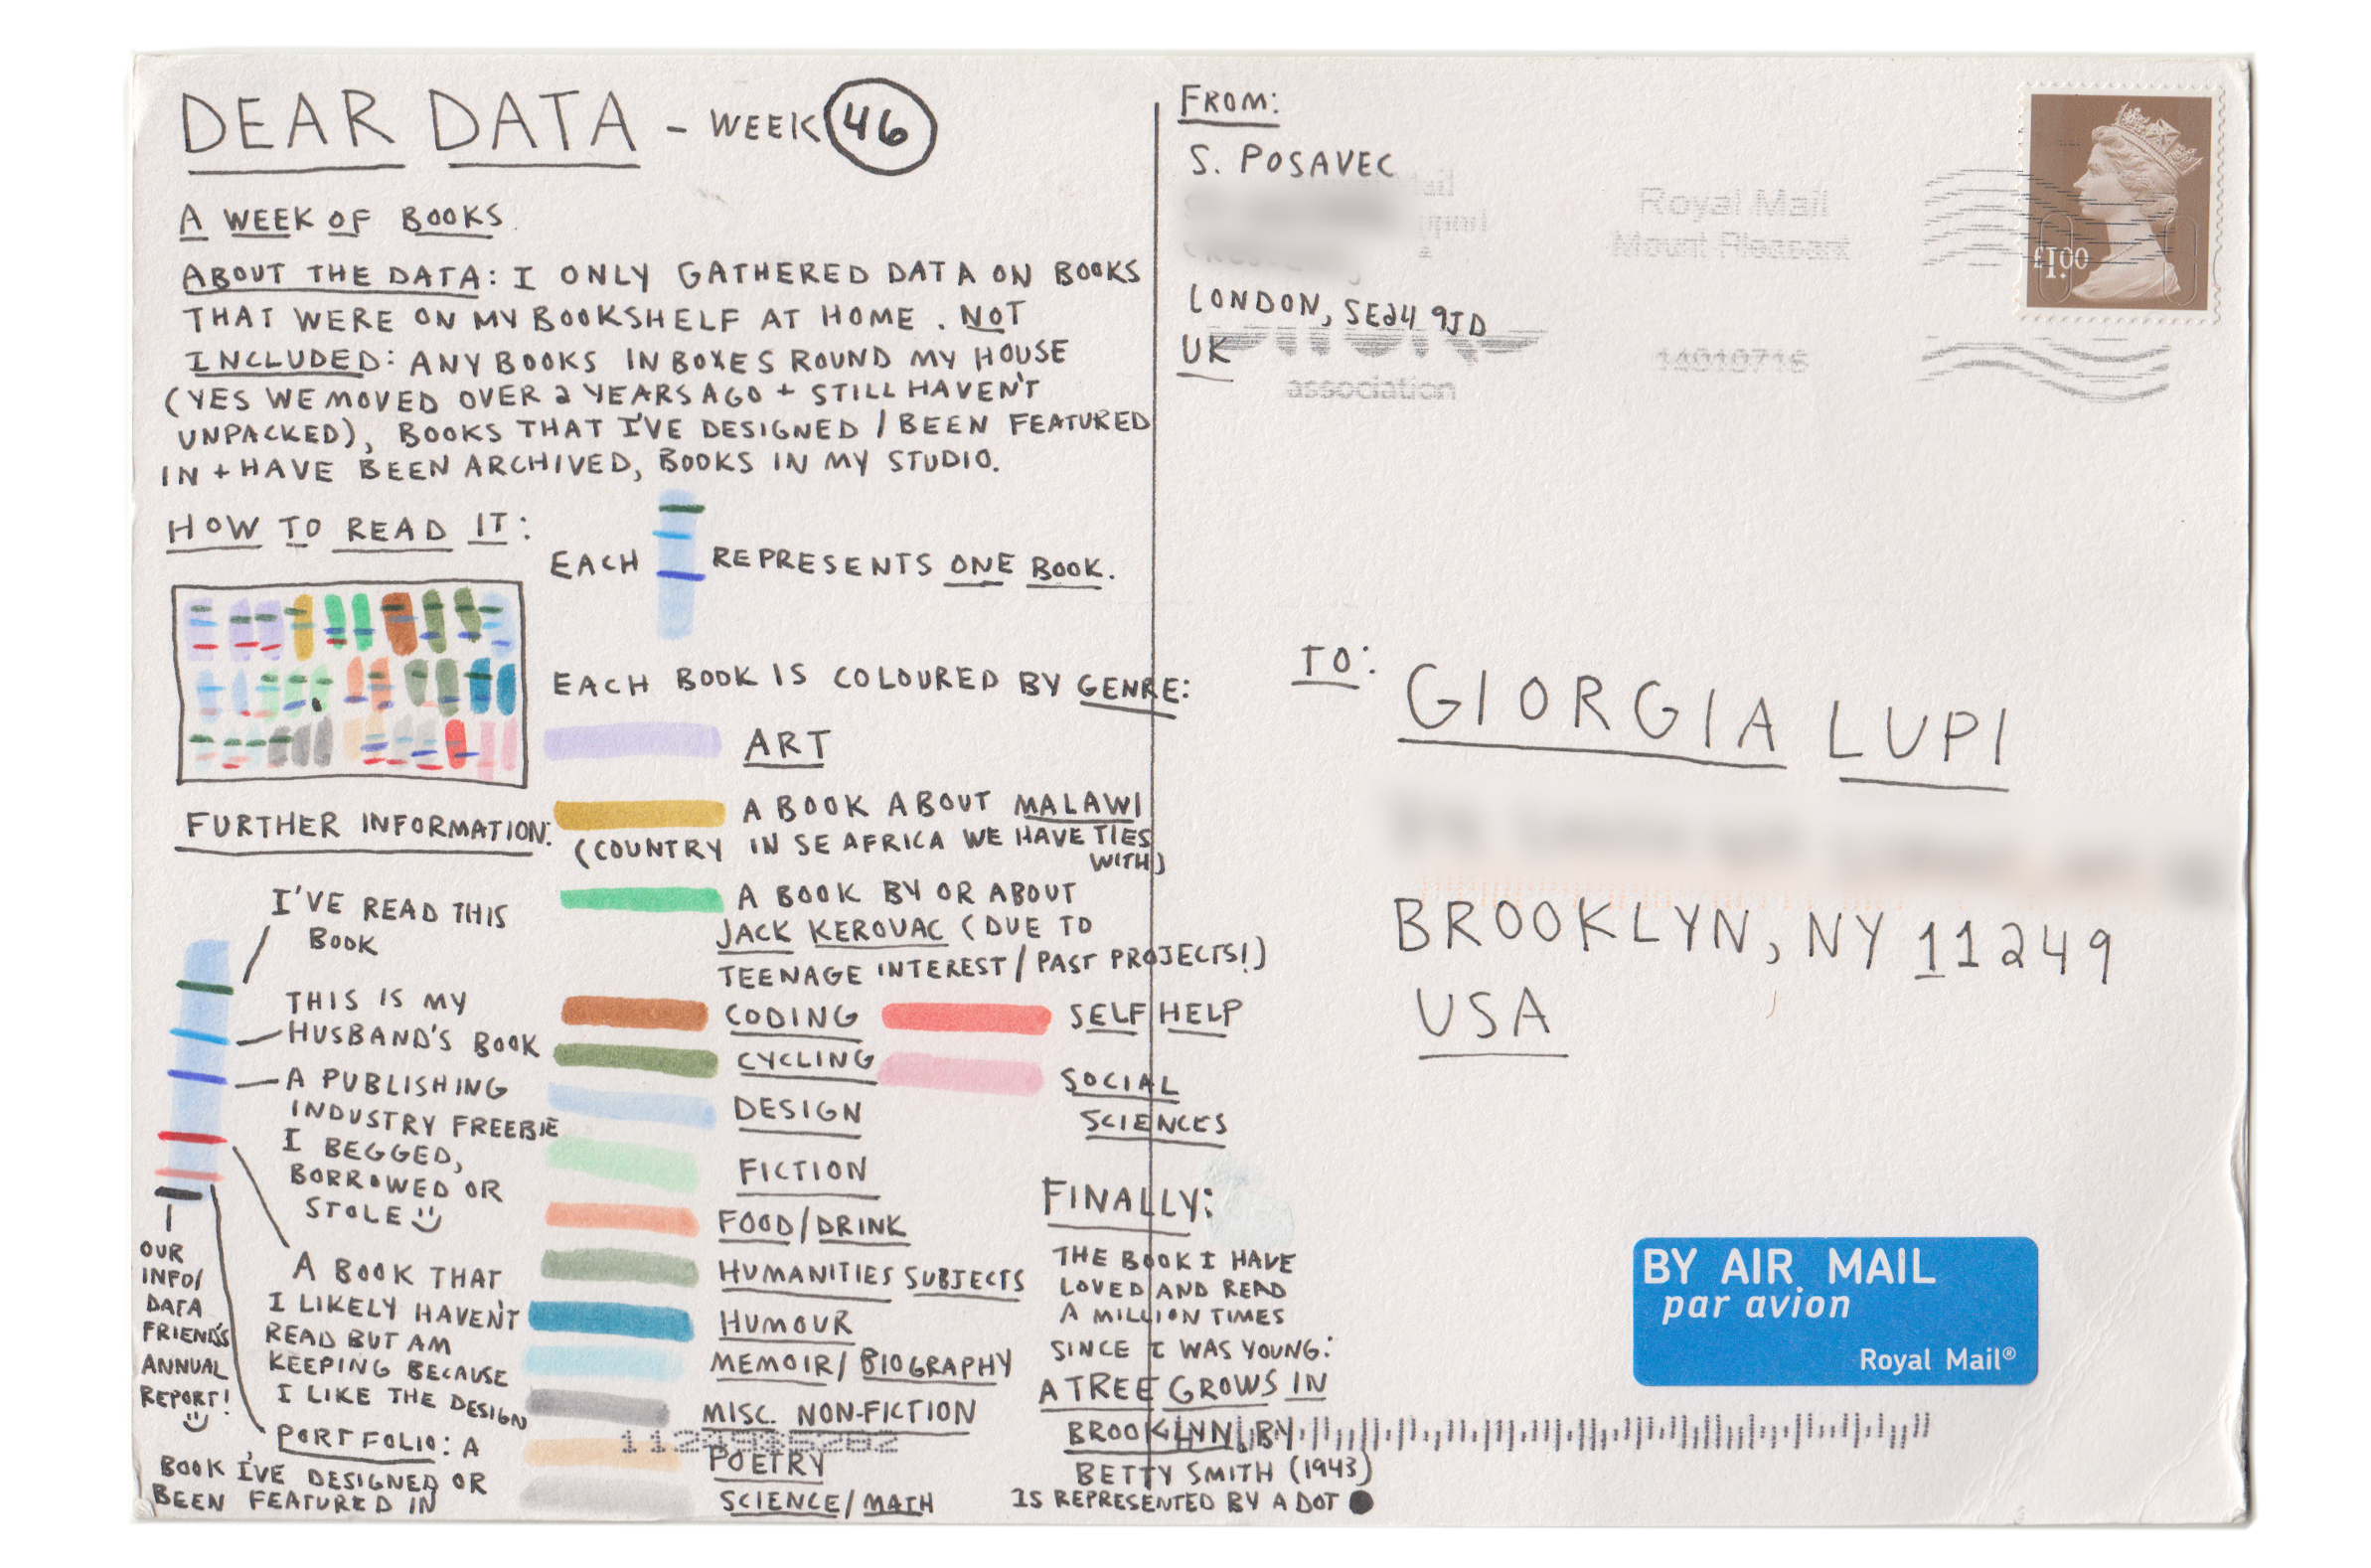 DEAR DATA - WEEK 46
A WEEK OF BOOKS.
ABOUT THE DATA: I ONLY GATHERED DATA ON BOOKS
THAT WERE ON MY BOOKSHELF AT HOME. NOT
INCLUDED: ANY BOOKS IN BOXES ROUND MY HOUSE
(YES WE MOVED OVER 2 YEARS AGO + STILL HAVEN'T
UNPACKED), BOOKS THAT I'VE DESIGNED / BEEN FEATURED
IN + HAVE BEEN ARCHIVED, BOOKS IN MY STUDIO.
HOW TO READ IT:
EACH REPRESENTS ONE BOOK.
EACH BOOK IS COLOURED BY GENRE:
ART
A BOOK ABOUT MALAWI
(COUNTRY IN SE AFRICA WE HAVE TIES
WITH)
A BOOK BY OR ABOUT
JACK KEROUAC (DUE TO
TEENAGE INTEREST / PAST PROJECTS!)
CODING
CYCLING
DESIGN
FICTION
FOOD/DRINK
HUMANITIES SUBJECTS
HUMOUR
MEMOIR/BIOGRAPHY
MISC. NON-FICTION
POETRY
SCIENCE/MATH
SELF HELP
SOCIAL
SCIENCES
FURTHER INFORMATION:
I'VE READ THIS
BOOK
THIS IS MY
HUSBAND'S BOOK
A PUBLISHING
INDUSTRY FREEBIE
I BEGGED,
BORROWED OR
STOLE
A BOOK THAT
I LIKELY HAVEN'T
READ BUT AM
KEEPING BECAUSE
I LIKE THE DESIGN
PORTFOLIO: A
BOOK I'VE DESIGNED OR
BEEN FEATURED IN
OUR
INFO/
DATA
FRIEND'S
ANNUAL
REPORT!
FINALLY:
THE BOOK I HAVE
LOVED AND READ
A MILLION TIMES
SINCE I WAS YOUNG:
A TREE GROWS IN
BROOKLYN, BY
BETTY SMITH (1943)
IS REPRESENTED BY A DOT
FROM:
S. POSAVEC
LONDON, SE24 9JD
UK
association
Royal Mail
Mount Pleasant
14010715
£1.00
TO:
GIORGIA LUPI
BROOKLYN, NY 11249
USA
BY AIR MAIL
par avion
Royal Mail®